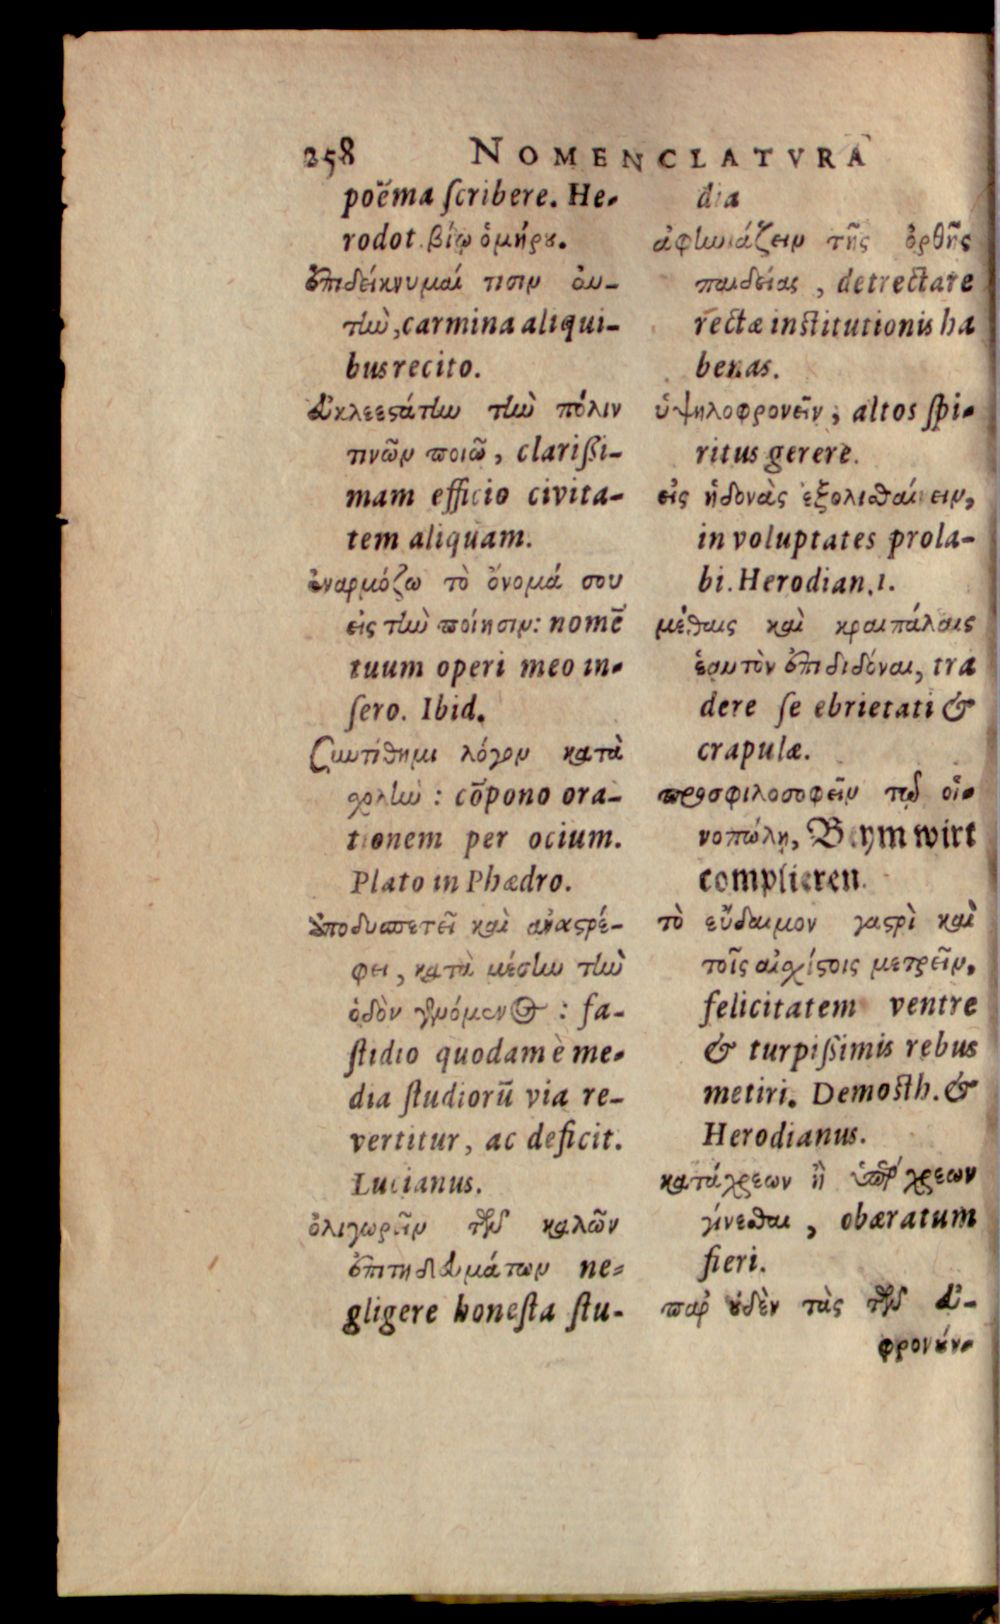 258 NOMENCLATVRA
poëma ſcribere. He-
rodot. βίῳ ὁμήρȣ.
ἐπιδείκνυμαί τισιν ἀυ-
τὴν, carmina aliqui-
bus recito.
ἐυκλεεςάτην τὴν πόλιν
τινῶν ποιῶ, clariſſi-
mam efficio civita-
tem aliquam.
ἐναρμόζω τὸ ὄνομά σου
εἰς τὴν ποίησιν: nomē
tuum operi meo in-
ſero. Ibid.
Συντίθημι λόγον κατὰ
χολὴν: cōpono ora-
tionem per ocium.
Plato in Phædro.
ὑποδυσπετεῖ καὶ ἀναςρέ-
φει, κατὰ μέσην τὴν
ὁδὸν γενόμενος: fa-
ſtidio quodam è me-
dia ſtudiorū via re-
vertitur, ac deficit.
Lucianus.
ὀλιγωρεῖν τῶν καλῶν
ἐπιτηδευμάτων ne-
gligere honeſta ſtu-
dia
ἀφηνιάζειν τῆς ὀρθῆς
παιδείας, detrectare
rectæ inſtitutionis ha
benas.
ὑψηλοφρονεῖν, altos ſpi-
ritus gerere.
εἰς ἡδονὰς ἐξολισθαίνειν,
in voluptates prola-
bi. Herodian. 1.
μέθαις καὶ κραιπάλαις
ἑαυτὸν ἐπιδιδόναι, tra
dere ſe ebrietati &
crapulæ.
προσφιλοσοφεῖν τῷ οἰ-
νοπώλῃ, Beym wirt
complieren.
τὸ εὔδαιμον γαςρὶ καὶ
τοῖς αἰχίςοις μετρεῖν,
felicitatem ventre
& turpiſſimis rebus
metiri. Demoſth. &
Herodianus.
κατάχρεων ἢ ὑπέρχρεων
γίνεσθαι, obæratum
fieri.
παρ ȣδὲν τὰς τῶν ἐυ-
φρονȣ́ν-